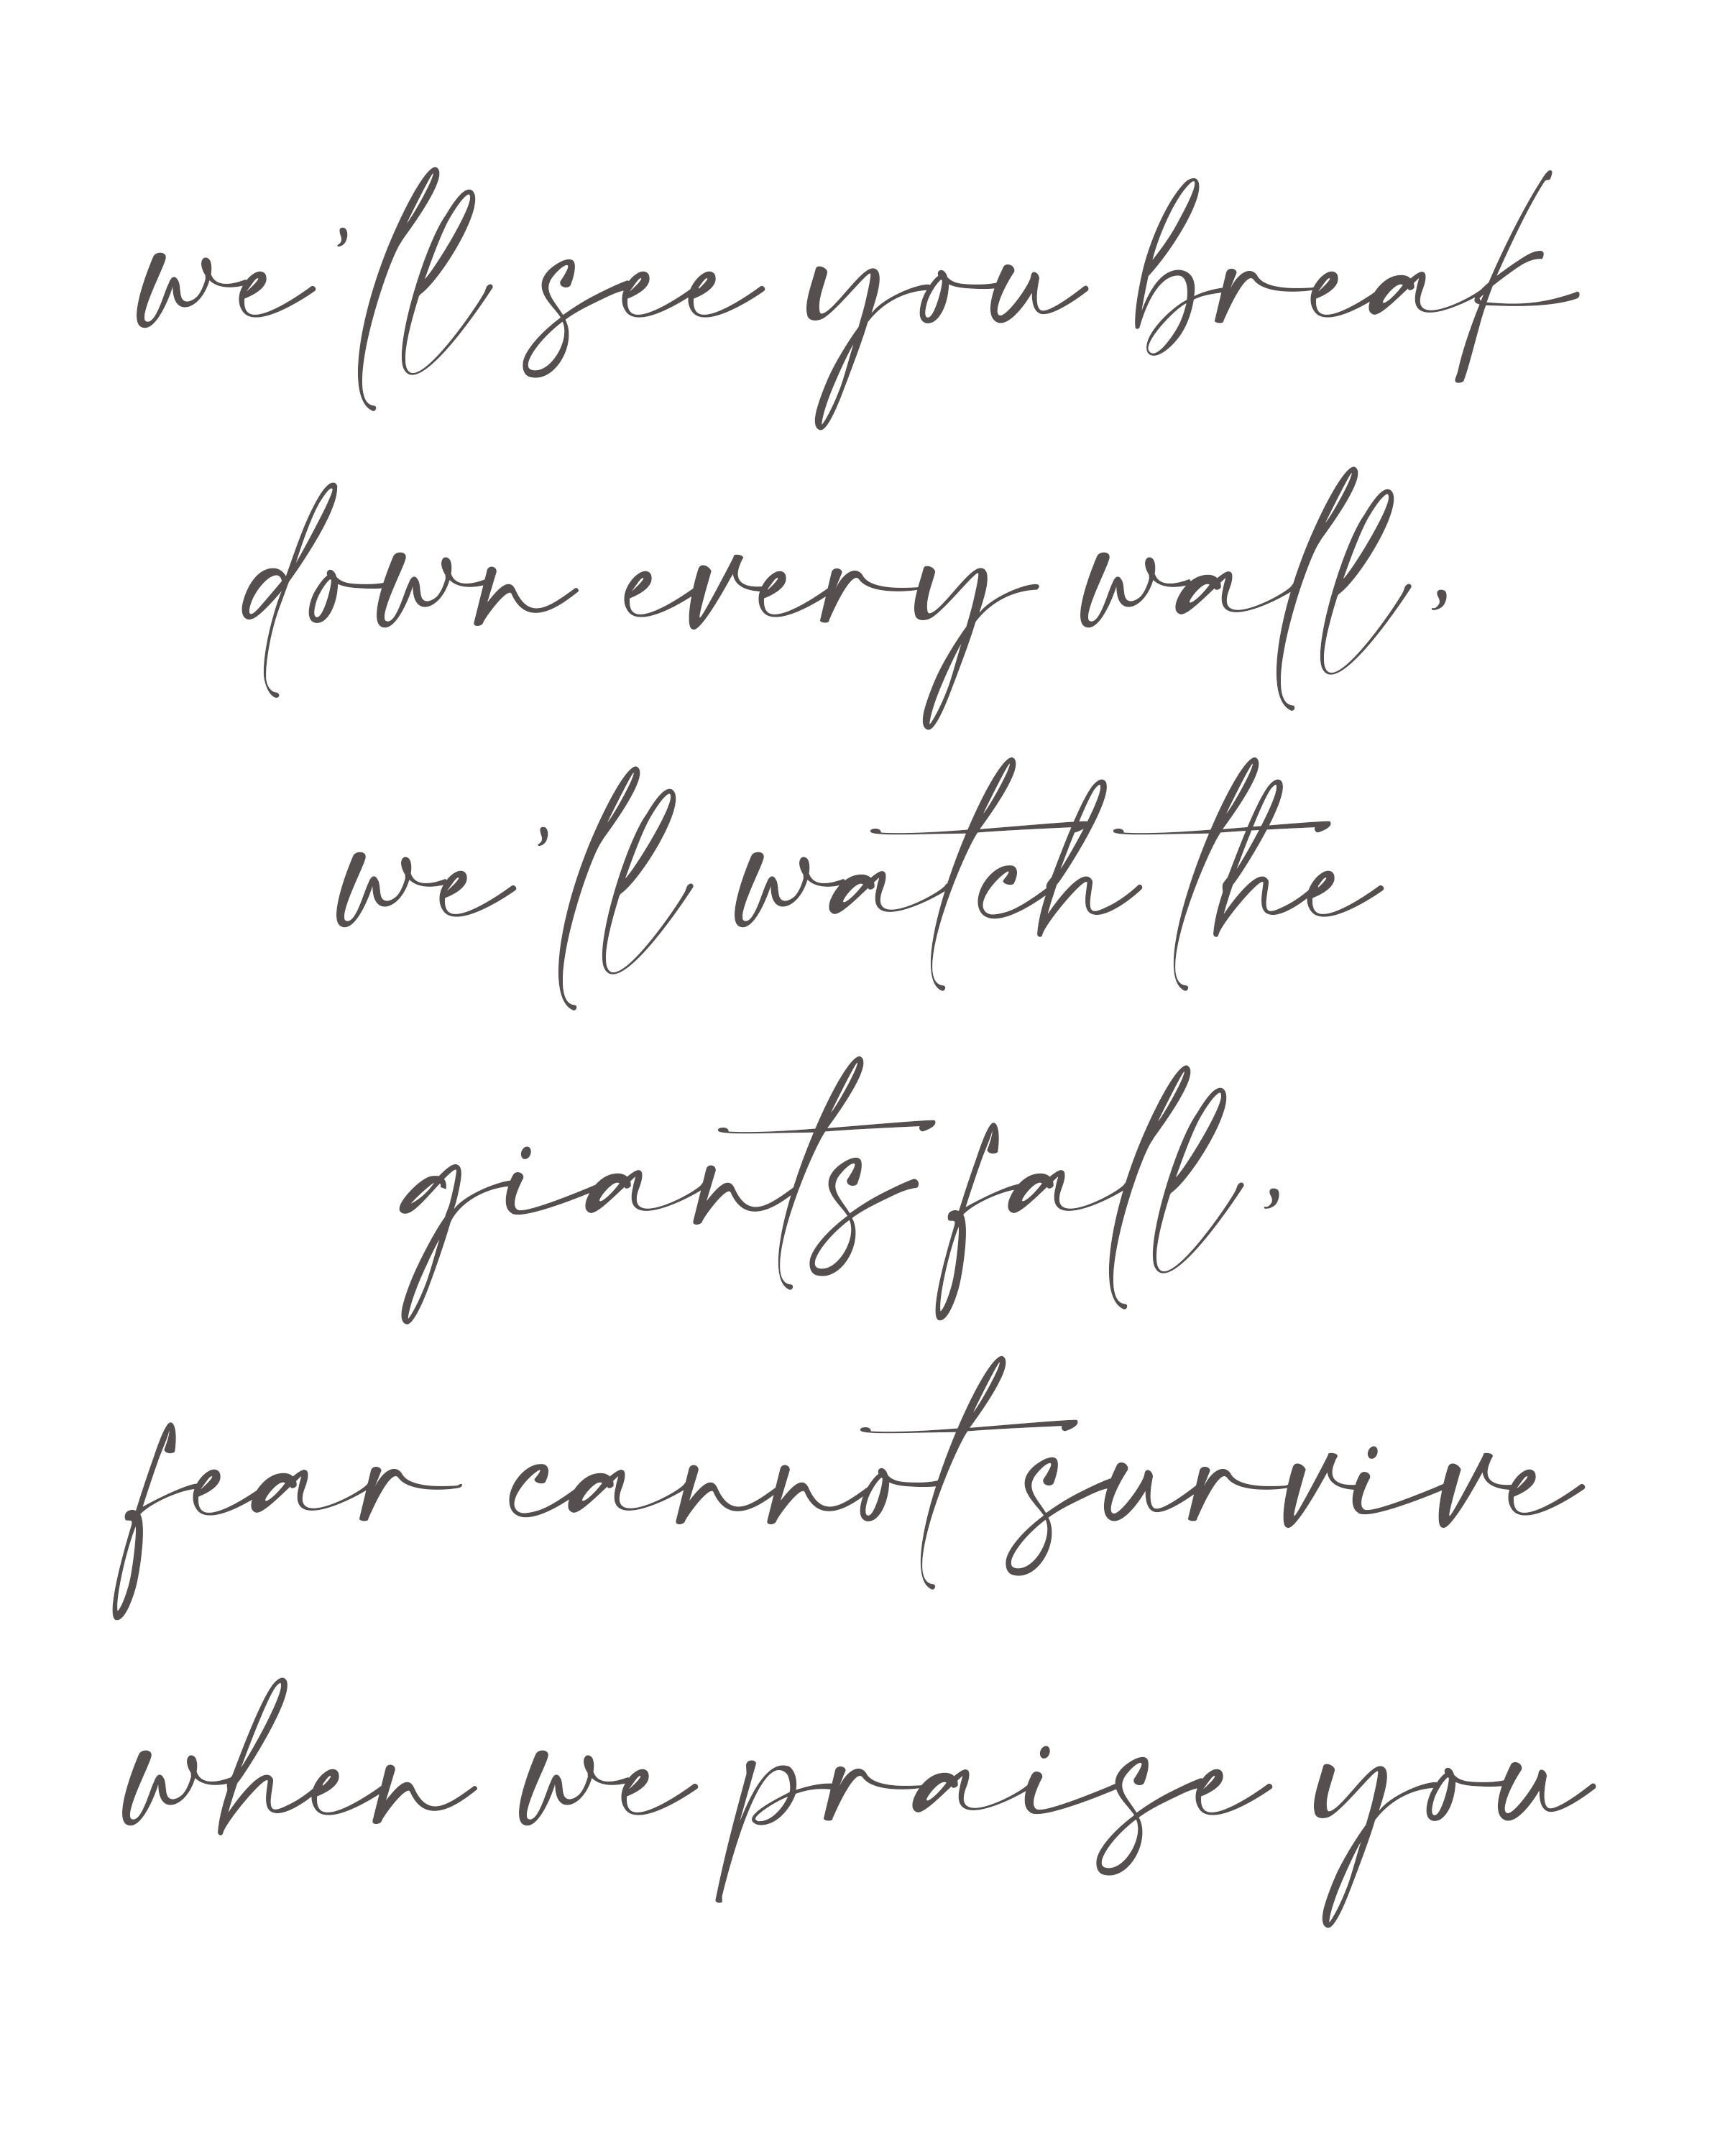 we'll see you break
down every wall,
we'll watch the
giants fall,
fear cannot survive
when we praise you